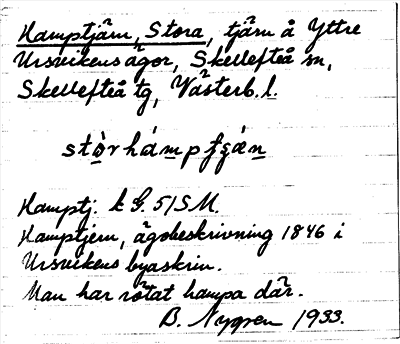 Hamptjärn, Stora, tjärn å Yttre
Ursvikens ägor, Skellefteå sn,
Skellefteå tg, Västerb. l.
stòrhámpfʒán
Hamptj. k G. 51SM.
Hamptjern, ägobeskrivning 1846 i
Ursvikens byaskrin.
Man har rötat hampa där.
B. Nygren 1933.